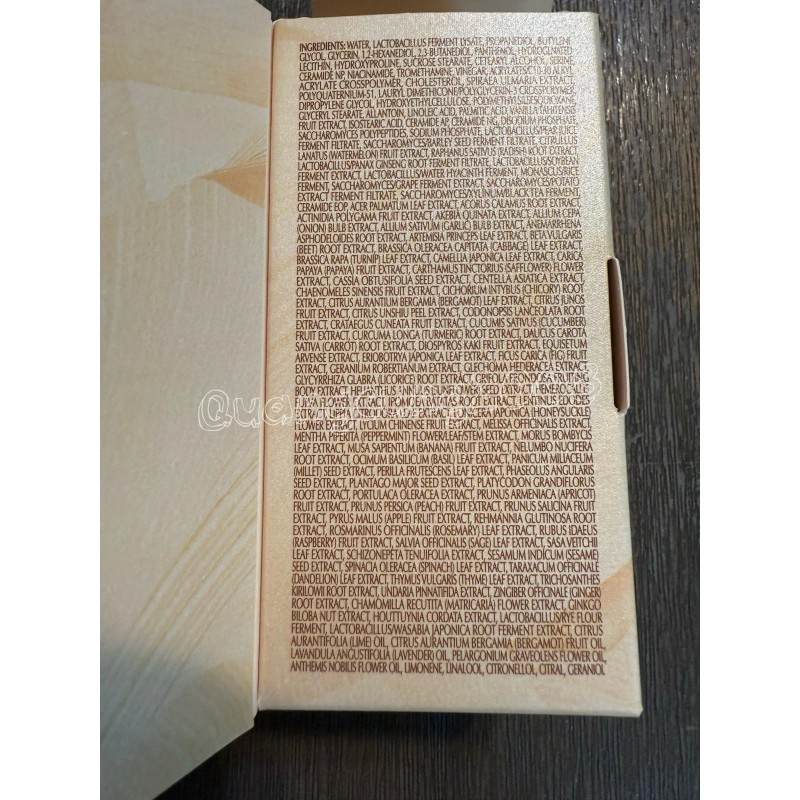 INGREDIENTS: WATER, LACTOBACILLUS FERMENT LYSATE, PROPANEDIOL, BUTYLENE
GLYCOL, GLYCERIN, 1,2-HEXANEDIOL, 2,3-BUTANEDIOL, PANTHENOL, HYDROGENATED
LECITHIN, HYDROXYPROLINE, SUCROSE STEARATE, CETEARYL ALCOHOL, SERINE,
CERAMIDE NP, NIACINAMIDE, TROMETHAMINE, VINEGAR, ACRYLATES/C10-30 ALKYL
ACRYLATE CROSSPOLYMER, CHOLESTEROL, SPIRAEA ULMARIA EXTRACT,
POLYQUATERNIUM-51, LAURYL DIMETHICONE/POLYGLYCERIN-3 CROSSPOLYMER,
DIPROPYLENE GLYCOL, HYDROXYETHYLCELLULOSE, POLYMETHYLSILSESQUIOXANE,
GLYCERYL STEARATE, ALLANTOIN, LINOLEIC ACID, PALMITIC ACID, VANILLA TAHITENSIS
FRUIT EXTRACT, ISOSTEARIC ACID, CERAMIDE AP, CERAMIDE NG, DISODIUM PHOSPHATE,
SACCHAROMYCES POLYPEPTIDES, SODIUM PHOSPHATE, LACTOBACILLUS/PEAR JUICE
FERMENT FILTRATE, SACCHAROMYCES/BARLEY SEED FERMENT FILTRATE, CITRULLUS
LANATUS (WATERMELON) FRUIT EXTRACT, RAPHANUS SATIVUS (RADISH) ROOT EXTRACT,
LACTOBACILLUS/PANAX GINSENG ROOT FERMENT FILTRATE, LACTOBACILLUS/SOYBEAN
FERMENT EXTRACT, LACTOBACILLUS/WATER HYACINTH FERMENT, MONASCUS/RICE
FERMENT, SACCHAROMYCES/GRAPE FERMENT EXTRACT, SACCHAROMYCES/POTATO
EXTRACT FERMENT FILTRATE, SACCHAROMYCES/XYLINUM/BLACK TEA FERMENT,
CERAMIDE EOP, ACER PALMATUM LEAF EXTRACT, ACORUS CALAMUS ROOT EXTRACT,
ACTINIDIA POLYGAMA FRUIT EXTRACT, AKEBIA QUINATA EXTRACT, ALLIUM CEPA
(ONION) BULB EXTRACT, ALLIUM SATIVUM (GARLIC) BULB EXTRACT, ANEMARRHENA
ASPHODELOIDES ROOT EXTRACT, ARTEMISIA PRINCEPS LEAF EXTRACT, BETA VULGARIS
(BEET) ROOT EXTRACT, BRASSICA OLERACEA CAPITATA (CABBAGE) LEAF EXTRACT,
BRASSICA RAPA (TURNIP) LEAF EXTRACT, CAMELLIA JAPONICA LEAF EXTRACT, CARICA
PAPAYA (PAPAYA) FRUIT EXTRACT, CARTHAMUS TINCTORIUS (SAFFLOWER) FLOWER
EXTRACT, CASSIA OBTUSIFOLIA SEED EXTRACT, CENTELLA ASIATICA EXTRACT,
CHAENOMELES SINENSIS FRUIT EXTRACT, CICHORIUM INTYBUS (CHICORY) ROOT
EXTRACT, CITRUS AURANTIUM BERGAMIA (BERGAMOT) LEAF EXTRACT, CITRUS JUNOS
FRUIT EXTRACT, CITRUS UNSHIU PEEL EXTRACT, CODONOPSIS LANCEOLATA ROOT
EXTRACT, CRATAEGUS CUNEATA FRUIT EXTRACT, CUCUMIS SATIVUS (CUCUMBER)
FRUIT EXTRACT, CURCUMA LONGA (TURMERIC) ROOT EXTRACT, DAUCUS CAROTA
SATIVA (CARROT) ROOT EXTRACT, DIOSPYROS KAKI FRUIT EXTRACT, EQUISETUM
ARVENSE EXTRACT, ERIOBOTRYA JAPONICA LEAF EXTRACT, FICUS CARICA (FIG) FRUIT
EXTRACT, GERANIUM ROBERTIANUM EXTRACT, GLECHOMA HEDERACEA EXTRACT,
GLYCYRRHIZA GLABRA (LICORICE) ROOT EXTRACT, GRIFOLA FRONDOSA FRUITING
BODY EXTRACT, HELIANTHUS ANNUUS (SUNFLOWER) SEED EXTRACT, HEMEROCALLIS
FULVA FLOWER EXTRACT, IPOMOEA BATATAS ROOT EXTRACT, LENTINUS EDODES
EXTRACT, LIPPIA CITRIODORA LEAF EXTRACT, LONICERA JAPONICA (HONEYSUCKLE)
FLOWER EXTRACT, LYCIUM CHINENSE FRUIT EXTRACT, MELISSA OFFICINALIS EXTRACT,
MENTHA PIPERITA (PEPPERMINT) FLOWER/LEAF/STEM EXTRACT, MORUS BOMBYCIS
LEAF EXTRACT, MUSA SAPIENTUM (BANANA) FRUIT EXTRACT, NELUMBO NUCIFERA
ROOT EXTRACT, OCIMUM BASILICUM (BASIL) LEAF EXTRACT, PANICUM MILIACEUM
(MILLET) SEED EXTRACT, PERILLA FRUTESCENS LEAF EXTRACT, PHASEOLUS ANGULARIS
SEED EXTRACT, PLANTAGO MAJOR SEED EXTRACT, PLATYCODON GRANDIFLORUS
ROOT EXTRACT, PORTULACA OLERACEA EXTRACT, PRUNUS ARMENIACA (APRICOT)
FRUIT EXTRACT, PRUNUS PERSICA (PEACH) FRUIT EXTRACT, PRUNUS SALICINA FRUIT
EXTRACT, PYRUS MALUS (APPLE) FRUIT EXTRACT, REHMANNIA GLUTINOSA ROOT
EXTRACT, ROSMARINUS OFFICINALIS (ROSEMARY) LEAF EXTRACT, RUBUS IDAEUS
(RASPBERRY) FRUIT EXTRACT, SALVIA OFFICINALIS (SAGE) LEAF EXTRACT, SASA VEITCHII
LEAF EXTRACT, SCHIZONEPETA TENUIFOLIA EXTRACT, SESAMUM INDICUM (SESAME)
SEED EXTRACT, SPINACIA OLERACEA (SPINACH) LEAF EXTRACT, TARAXACUM OFFICINALE
(DANDELION) LEAF EXTRACT, THYMUS VULGARIS (THYME) LEAF EXTRACT, TRICHOSANTHES
KIRILOWII ROOT EXTRACT, UNDARIA PINNATIFIDA EXTRACT, ZINGIBER OFFICINALE (GINGER)
ROOT EXTRACT, CHAMOMILLA RECUTITA (MATRICARIA) FLOWER EXTRACT, GINKGO
BILOBA NUT EXTRACT, HOUTTUYNIA CORDATA EXTRACT, LACTOBACILLUS/RYE FLOUR
FERMENT, LACTOBACILLUS/WASABIA JAPONICA ROOT FERMENT EXTRACT, CITRUS
AURANTIFOLIA (LIME) OIL, CITRUS AURANTIUM BERGAMIA (BERGAMOT) FRUIT OIL,
LAVANDULA ANGUSTIFOLIA (LAVENDER) OIL, PELARGONIUM GRAVEOLENS FLOWER OIL,
ANTHEMIS NOBILIS FLOWER OIL, LIMONENE, LINALOOL, CITRONELLOL, CITRAL, GERANIOL